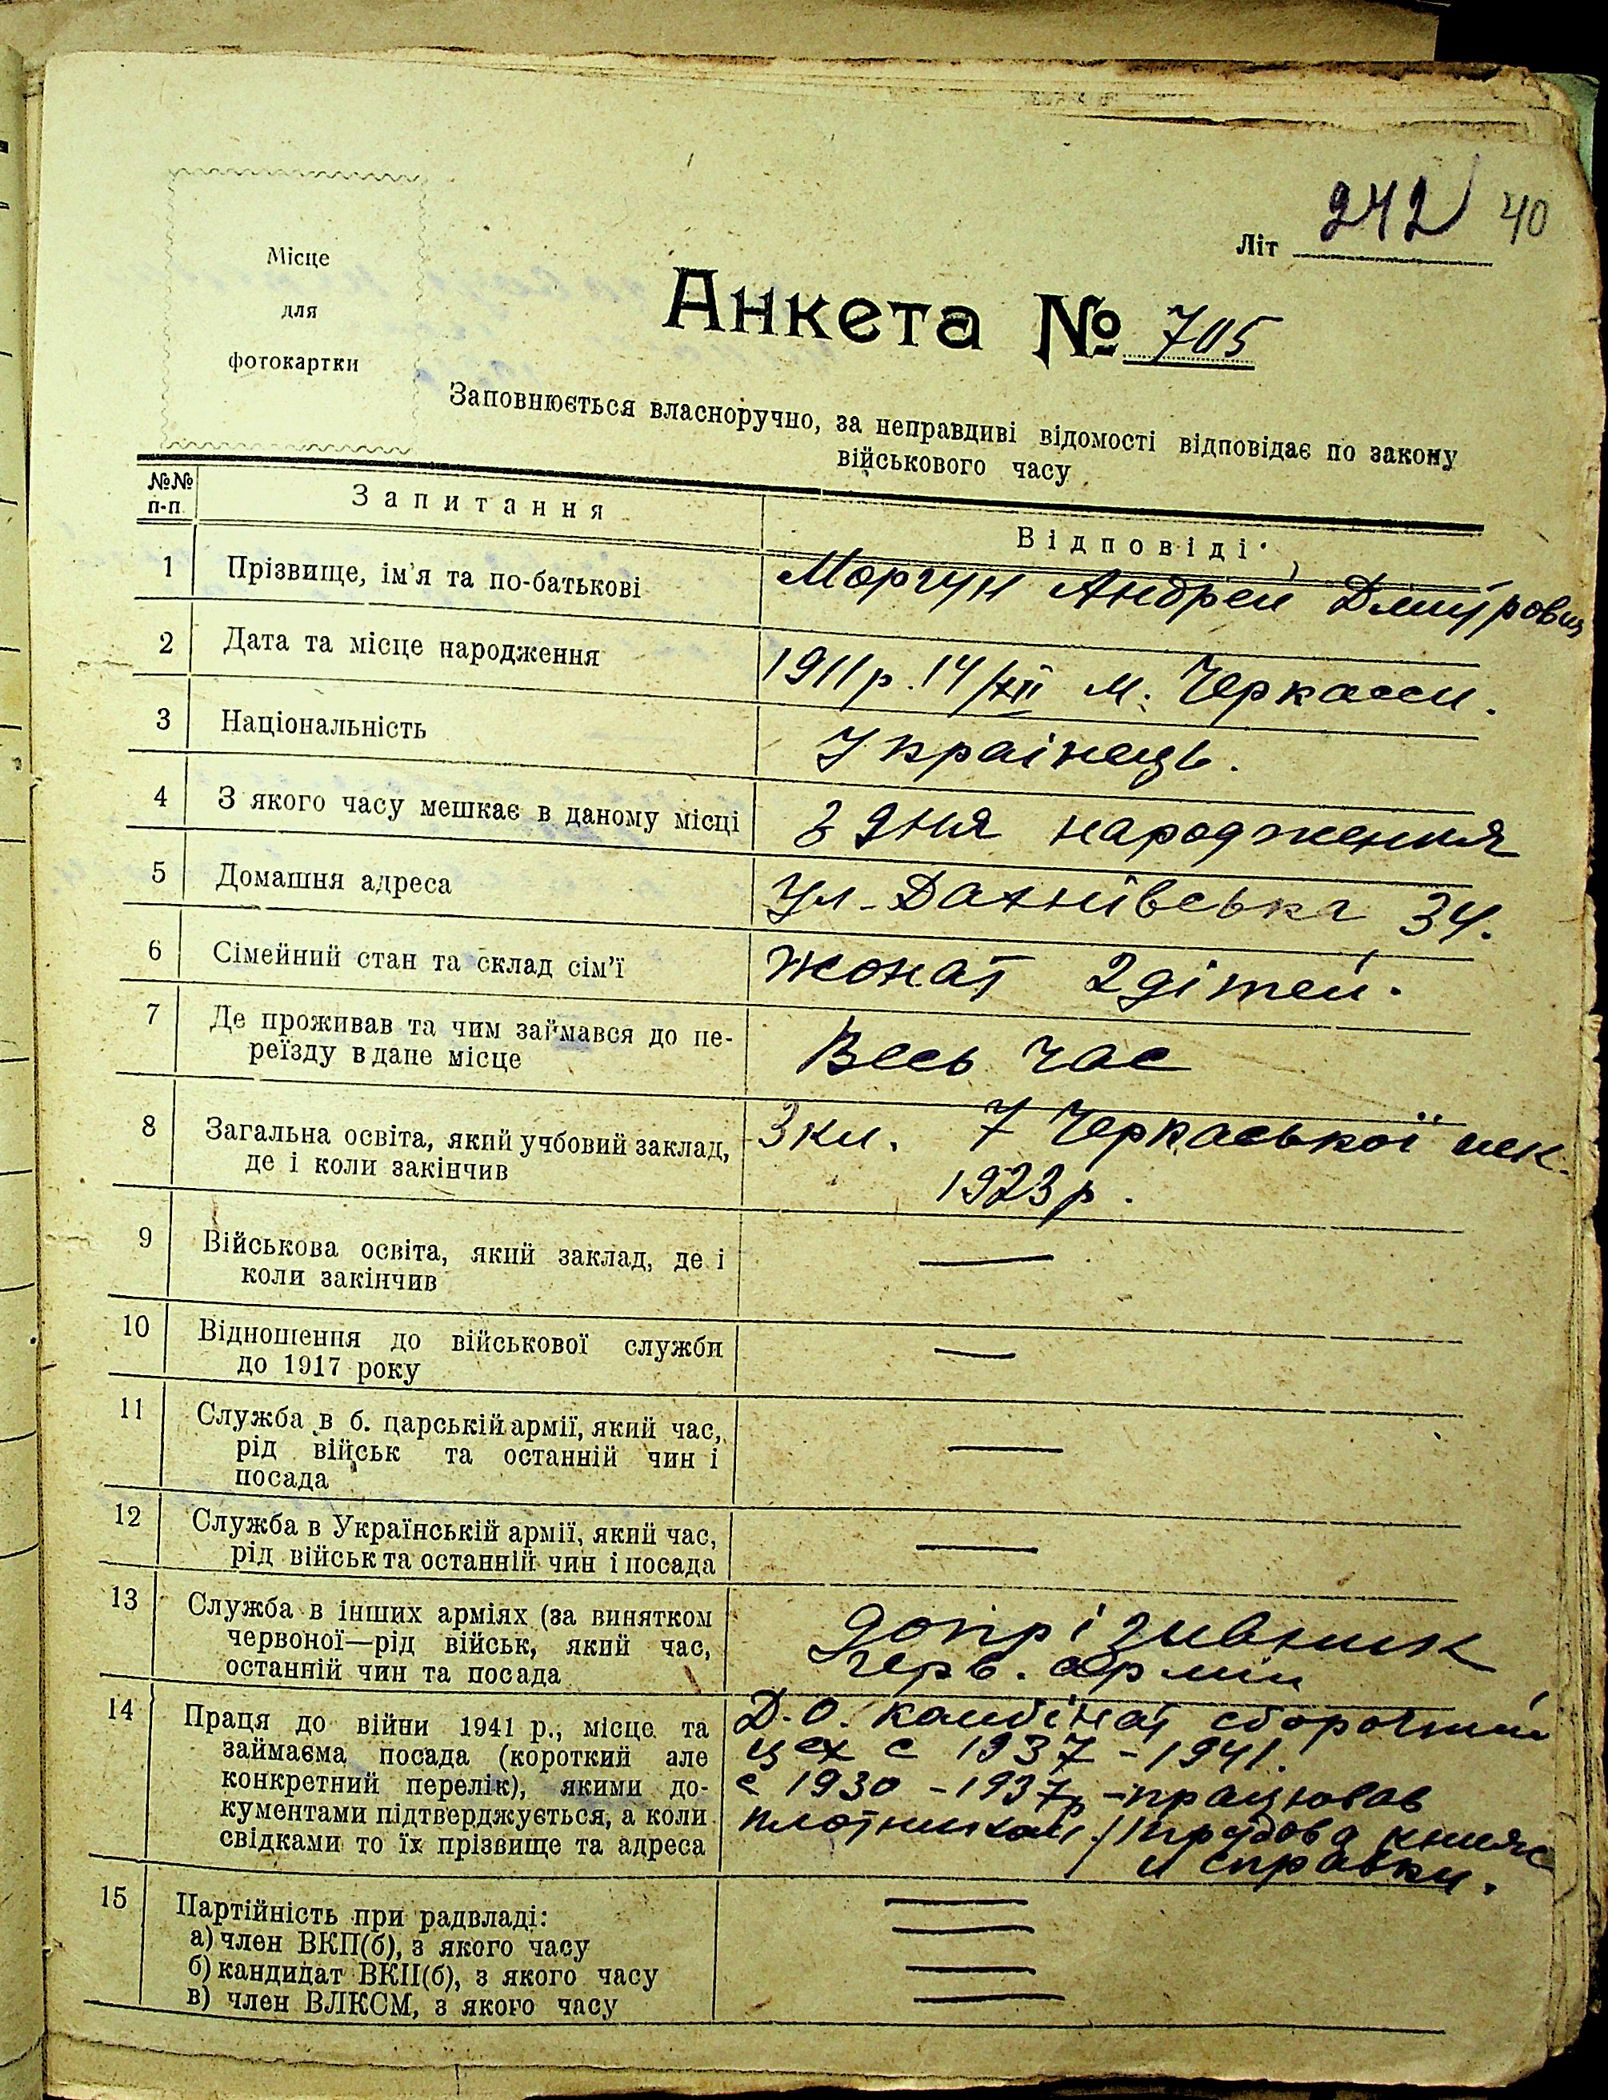 242 40
Літ
Місце
для
фотокартки
Анкета № 705
Заповнюється власноручно, за неправдиві відомості відповідає по закону
військового часу
№№
п-п.
Запитання
Відповіді
1 Прізвище, ім'я та по-батькові Моргун Андреи Дмитрович
2 Дата та місце народження 1911 р. 14/XII м. Черкасси.
3 Національність Украінець.
4 З якого часу мешкає в даному місці З дня народження
5 Домашня адреса Ул. Дахнівська 34.
6 Сімейний стан та склад сім'ї жонат 2 дітей.
7 Де проживав та чим займався до пе-
реїзду в дане місце Весь час
8 Загальна освіта, який учбовий заклад, 3 кл. 7 Черкаської шк.
де і коли закінчив 1923 р.
9 Військова освіта, який заклад, де і —
коли закінчив
10 Відношення до військової служби —
до 1917 року
11 Служба в б. царській армії, який час,
рід військ та останній чин і —
посада
12 Служба в Українській армії, який час,
рід військ та останній чин і посада —
13 Служба в інших арміях (за винятком допрізивник
червоної—рід військ, який час, черв. армии
останній чин та посада
14 Праця до війни 1941 р., місце та Д.О. камбінат сборочний
займаєма посада (короткий але цех с 1937 - 1941.
конкретний перелік), якими до- с 1930 - 1937р - працював
кументами підтверджується, а коли плотником / трудова книжс
свідками то їх прізвище та адреса и справки.
15 Партійність при радвладі: —
а) член ВКП(б), з якого часу —
б) кандидат ВКП(б), з якого часу —
в) член ВЛКСМ, з якого часу —